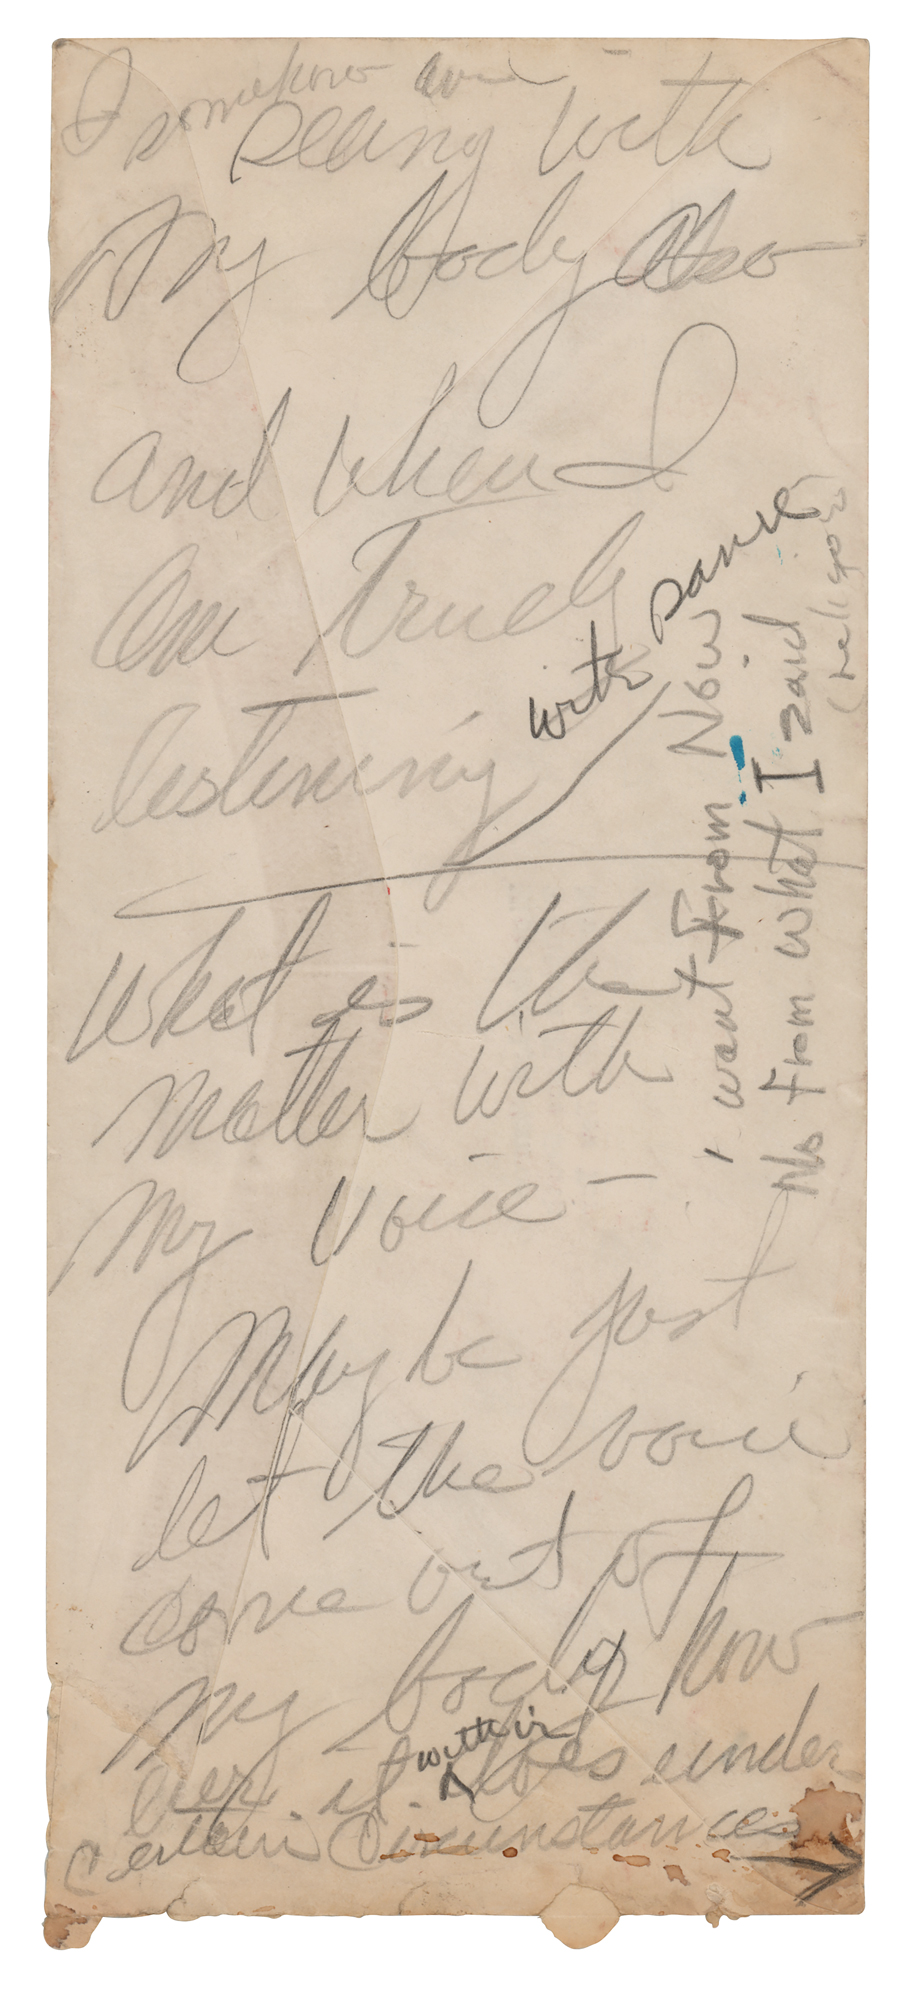 I somehow am
seeing with
my body also
and when I
am truely
listening
with same
what is the
matter with
my voice –
Maybe just
let the voice
come out of
my body how
ever it does under
within
certain circumstances
I want from Now
No from what I said